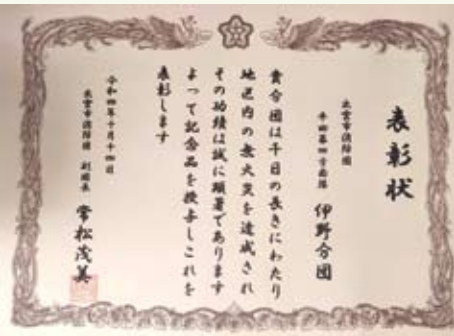 表彰状
出雲市消防団
平田第四方面隊 伊野分団
貴分団は千日の長きにわたり
地区内の無火災を達成され
その功績は誠に顕著であります
よって記念品を授与しこれを
表彰します
令和四年十月十四日
出雲市消防団 副団長 常松茂美